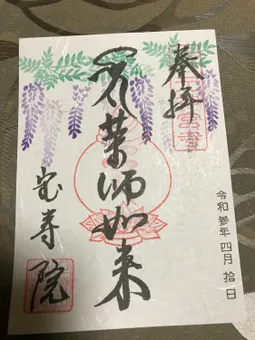 奉拝
薬師如来
宝寿院
令和参年四月拾日